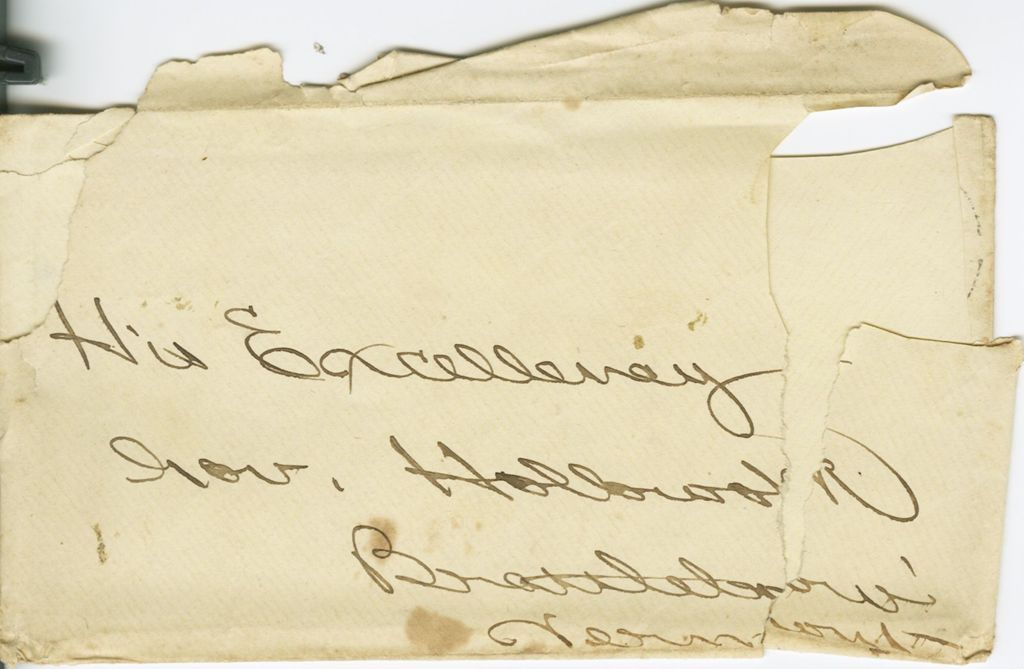 His Excellency
Gov. Holbrook
Brattleboro'
Vermont